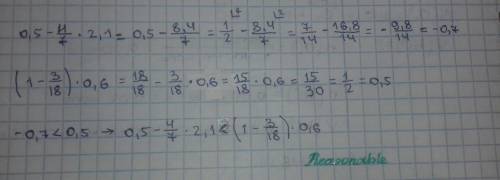 0,5 - 4/7 · 2,1 = 0,5 - 8,4/7 = 1/2 - 8,4/7 = 7/14 - 16,8/14 = - 9,8/14 = -0,7
(1 - 3/18) · 0,6 = 18/18 - 3/18 · 0,6 = 15/18 · 0,6 = 15/30 = 1/2 = 0,5
-0,7 < 0,5 → 0,5 - 4/7 · 2,1 < (1 - 3/18) · 0,6
Reasonable